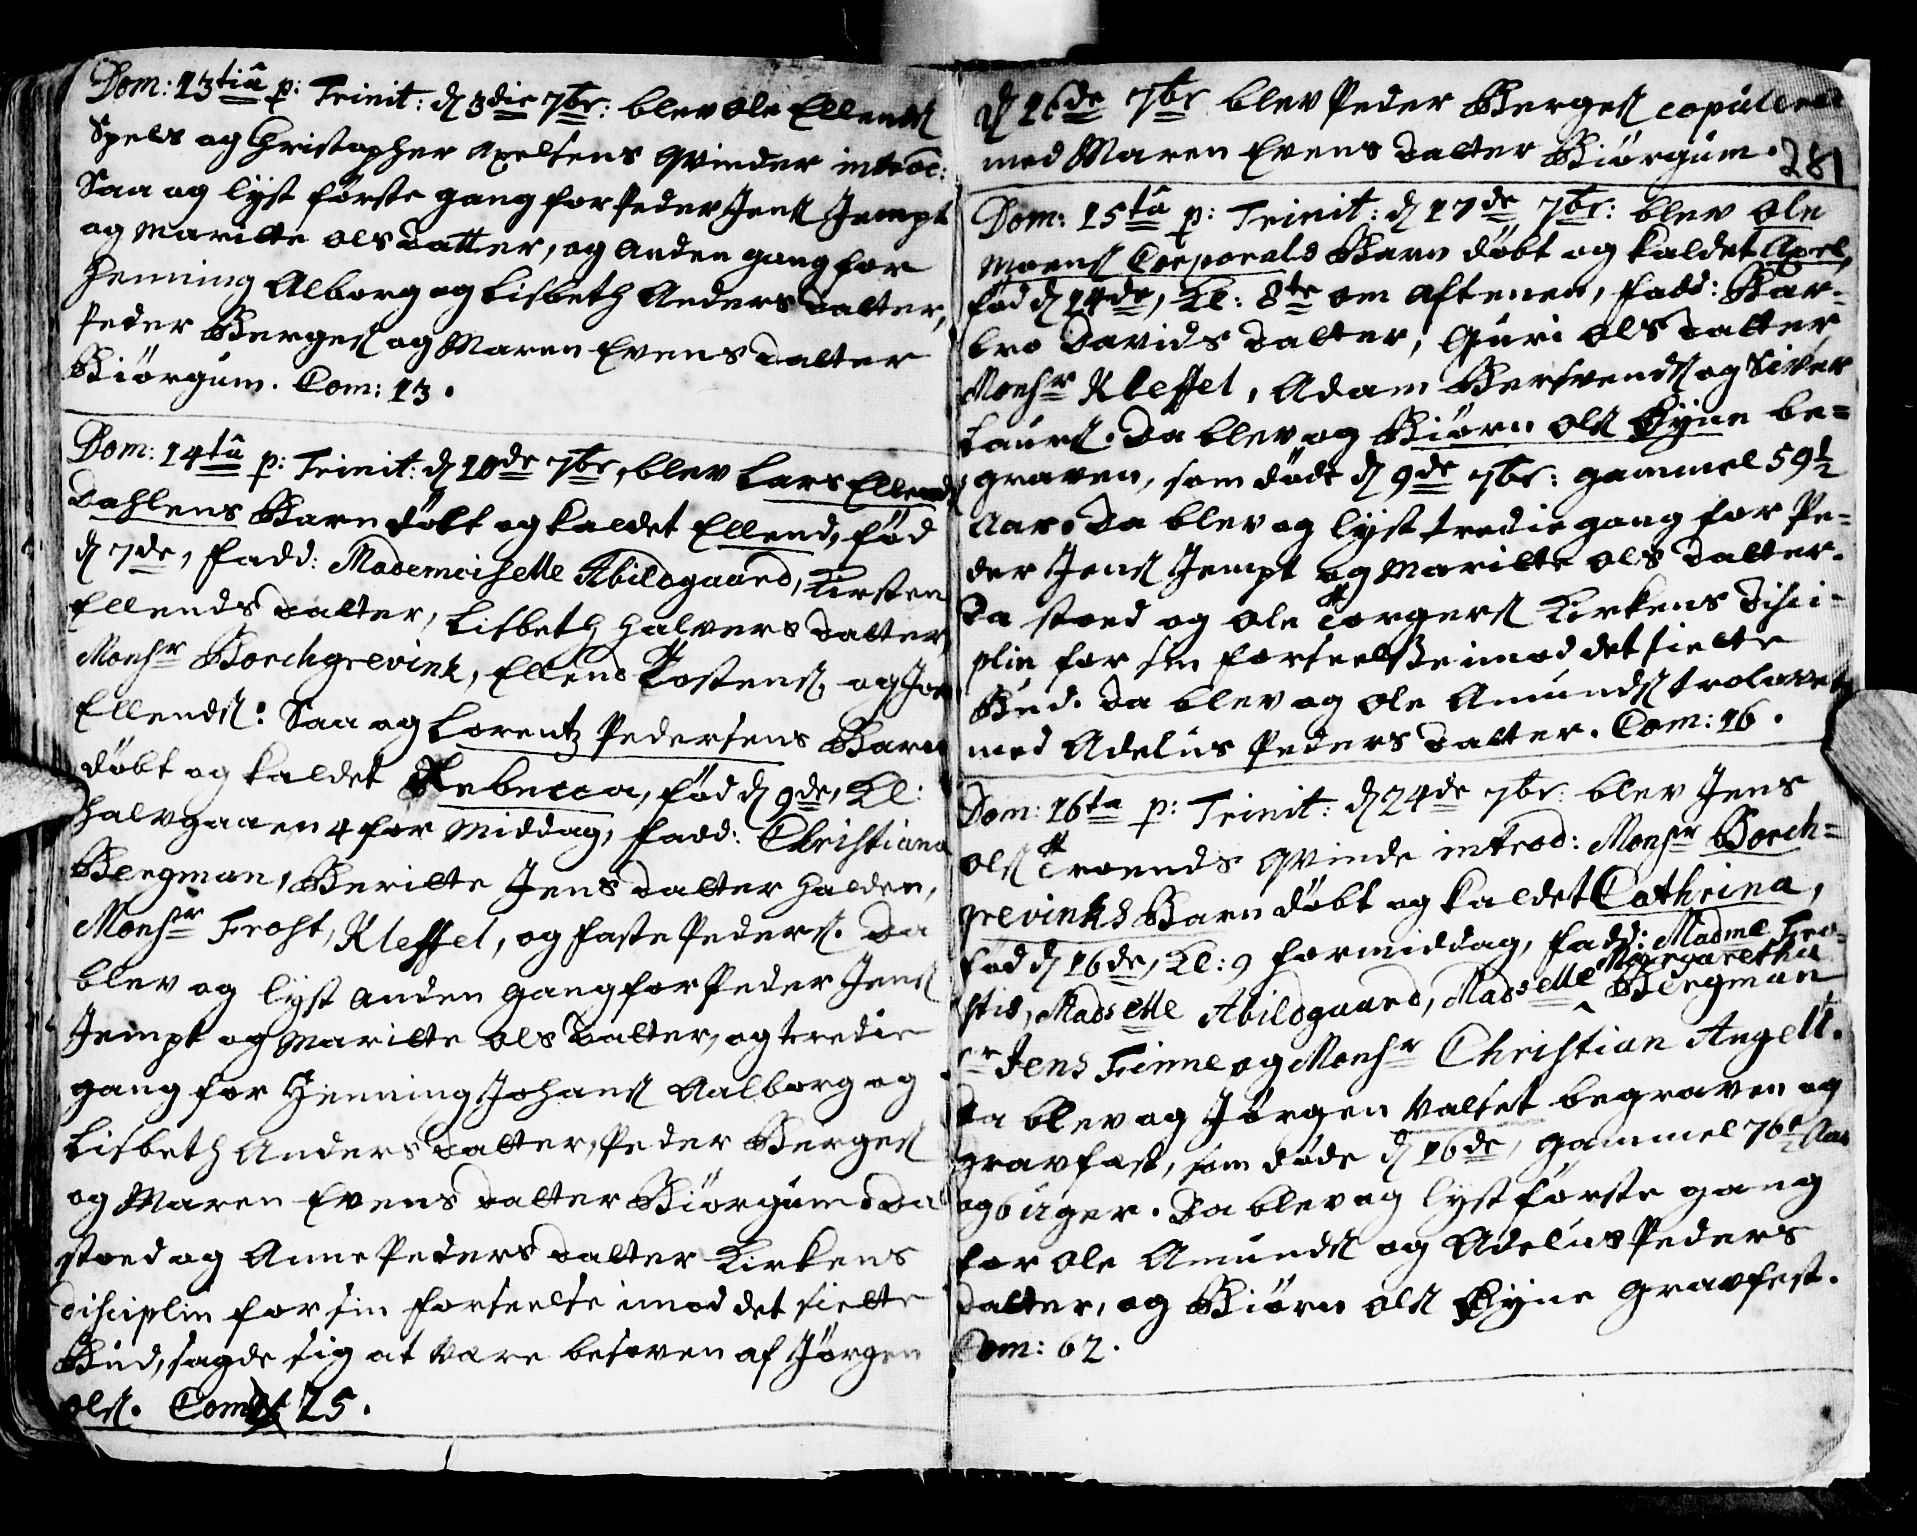 Dom: 13tiâ p: Trinit: d 3die 7br: blev Ole Ellends
Spels og Christopher Axelsens Qvinder introd:
Saa og lyst første gang for Peder Jens Jempt
og Maritte Olsdatter, og anden gang for
Henning Alborg og Lisbeth Andersdatter,
Peder Berges og Maren Evensdatter
Biørgum. Com: 13.
Dom: 14tâ p: Trinit: d 10de 7br, blev Lars Ellends
Dahlens Barn døbt og kaldet Ellend, fød
d 7de, fadd: Mademoiselle Abildgaard, Kirsten
Ellendsdatter, Lisbeth Halversdatter,
Monsr Borchgrevink, Ellend Tostens, og Joen
Ellends: Saa og Lorentz Pedersens Barn
døbt og kaldet Rebecca, fød d 9de, Kl:
halvgaaen 4 for Middag, fadd: Christiana
Bergman, Beritte Jensdatter Halden,
Monsr Frost, Kleffel, og Faste Peders. Da
blev og lyst anden gang for Peder Jens
Jempt og Maritte Olsdatter, og tredie
gang for Henning Johans Aalborg og
Lisbeth Andersdatter, Peder Berges
og Maren Evensdatter Biørgum. Da
stoed og Anne Pedersdatter Kirkens
disciplin for sin forseelse imod det siette
Bud, sagde sig at være besoven af Jørgen
Ols. Com: 25.
d 16de 7br blev Peder Berges copuleret
med Maren Evensdatter Biørgum.
281
Dom: 15tâ p: Trinit: d 17de 7br: blev Ole
Moens Corporals Barn døbt og kaldet Axel,
fød d 14de, Kl: 8te om aftenen, fadd: Bar-
bro Davidsdatter, Guri Olsdatter
Monsr Kleffel, Adam Bersvends og Siver
Laurs. Da blev og Biørn Ols Hyne be=
graven, som døde d 9de 7br: gammel 59½
Aar. Da blev og lyst tredie gang for Pe=
der Jens Jempt og Maritte Olsdatter.
Da stoed og Ole Torgers Kirkens Disci-
plin for sin forseelsse imod det siette
Bud. Da blev og Ole Amunds trolovet
med Adelus Pedersdatter. Com: 16.
Dom: 16ta p: Trinit: d 24de 7br: blev Jens
Ols Troends Qvinde introd: Monsr Borch=
grevinks Barn døbt og kaldet Cathrina,
fød d 16de, Kl: 9 formiddag, fadd: Madme Fro-
stis, Madselle Abildgaard, Madselle Margaretha Bergman
Sr Jens Finne og Monsr Christian Angell.
Da blev og Jørgen Valset begraven og
gravfæst, som døde d 16de, gammel 76 Aar
og 6 uger. Da blev og lyst første gang
for Ole Amunds og Adelus Peders
datter, og Biørn Ols Hyne gravfest.
Com: 62.